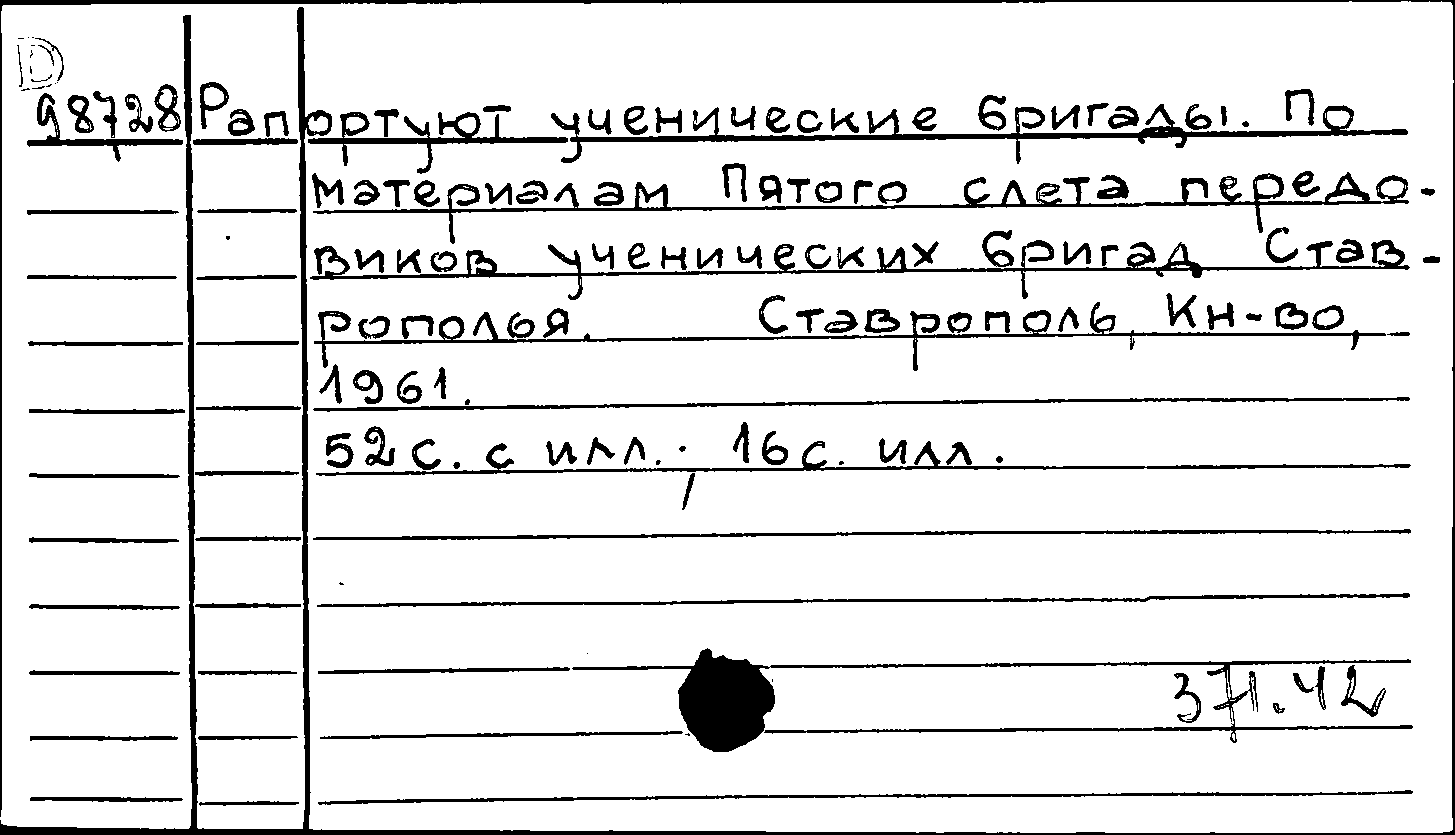 D
98728 Рапортуют ученические бригады. По
материалам Пятого слета передо-
виков ученических бригад Став-
рополья. Ставрополь, Кн-во,
1961.
52 с. с илл.; 16 с. илл.
371.42